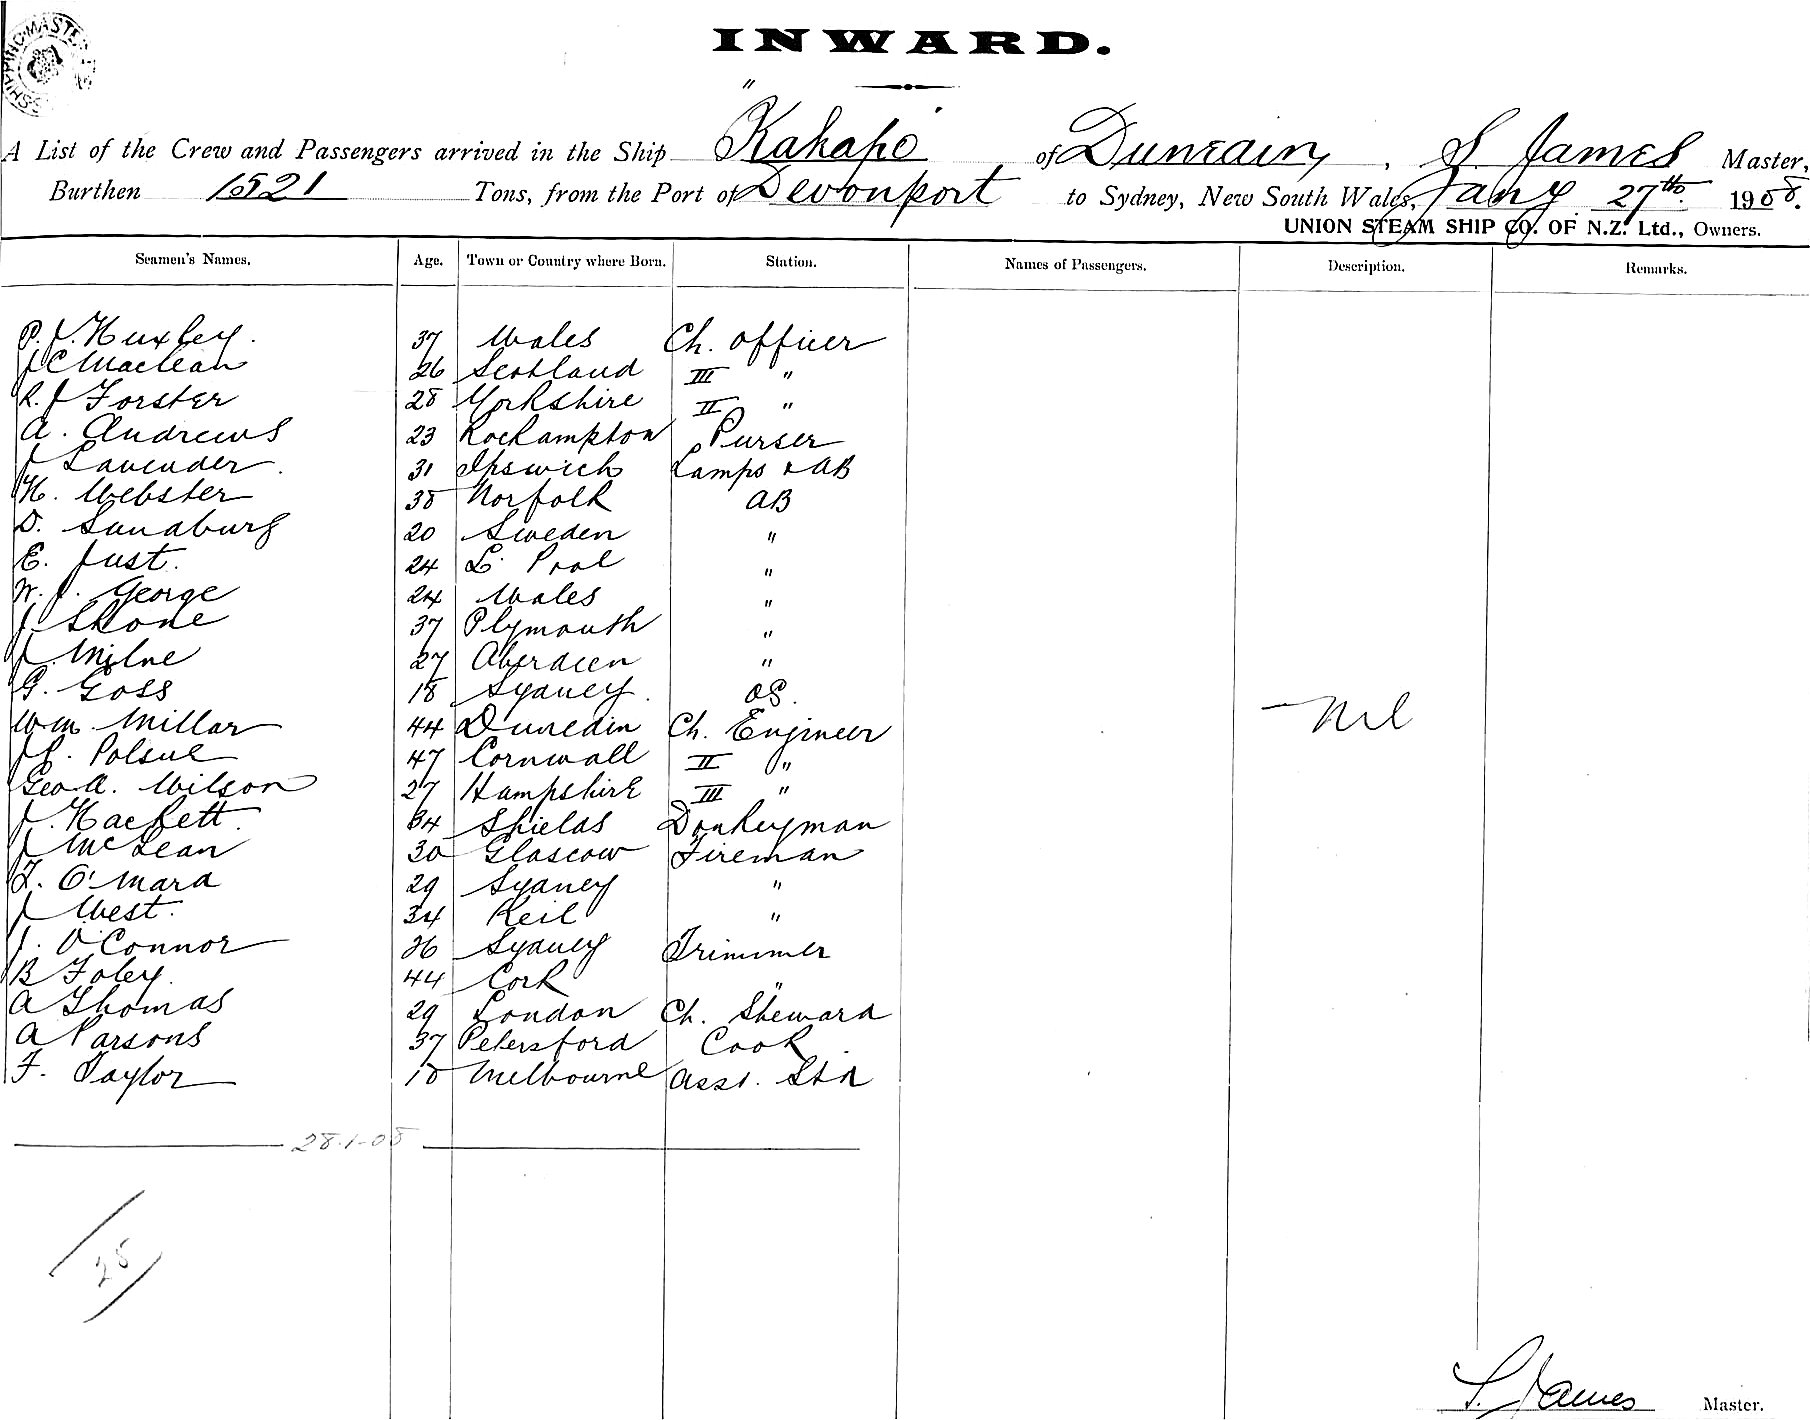 SHIPPING MASTER'S
INWARD.
A List of the Crew and Passengers arrived in the Ship "Kakapo" of Dunedin, S. James Master,
Burthen 1521 Tons, from the Port of Devonport to Sydney, New South Wales, Jany 27th 1908.
UNION STEAM SHIP CO. OF N.Z. Ltd., Owners.
Seamen's Names. Age. Town or Country where Born. Station. Names of Passengers. Description. Remarks.
P. J. Huxley. 37 Wales Ch. Officer
J C Maclean 26 Scotland III "
R. J Forster 28 Yorkshire II "
A. Andrews 23 Rockampton Purser
J Lavender. 31 Ipswich Lamps & AB
H. Webster 38 Norfolk AB
D. Sundburg 20 Sweden "
E. Just. 24 L. Pool "
W. J. George 24 Wales "
J Skone 37 Plymouth "
J. Milne 27 Aberdeen "
G. Goss 18 Sydney. OS.
Wm. Millar 44 Dunedin Ch. Engineer Nil
J C. Polsue 47 Cornwall II "
Geo A. Wilson 27 Hampshire III "
J. Hackett. 34 Shields Donkeyman
J McLean 30 Glascow Fireman
T. O'Mara 29 Sydney "
J West. 34 Keil "
J. O'Connor 26 Sydney Trimmer
B Foley. 44 Cork "
A Thomas 29 London Ch. Steward
A Parsons 37 Petersford Cook.
F. Taylor 18 Melbourne Asst. Std
28-1-08
28
S. James Master.